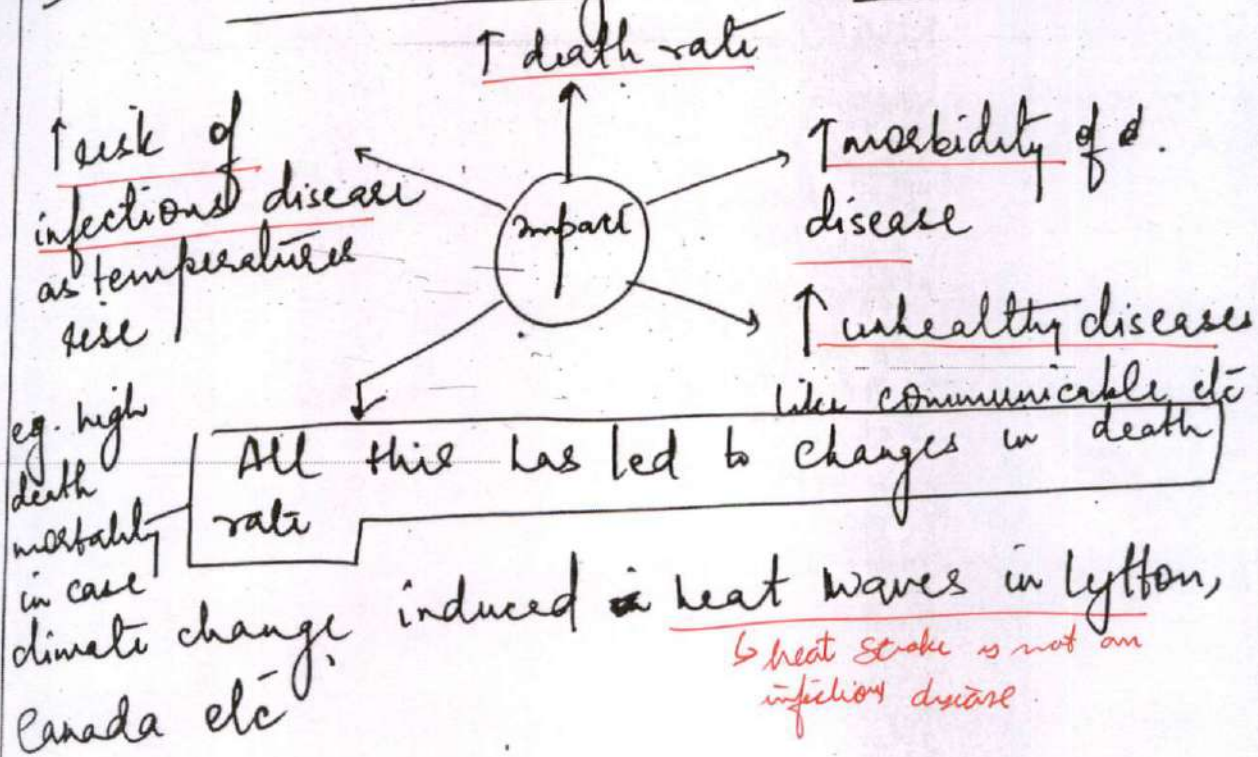 ↑ death rate
↑ risk of
infectious disease
as temperatures
rise
impact
↑ morbidity of
disease
↑ unhealthy diseases
like communicable etc
All this has led to changes in death
rate
eg. high
death
mortality
in case
climate change induced heat waves in Lytton,
Canada etc
↳ heat stroke is not an
infectious disease.